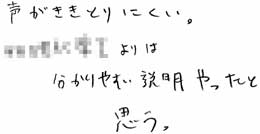 声がききとりにくい。
よりは
分かりやすい説明やったと
思う。